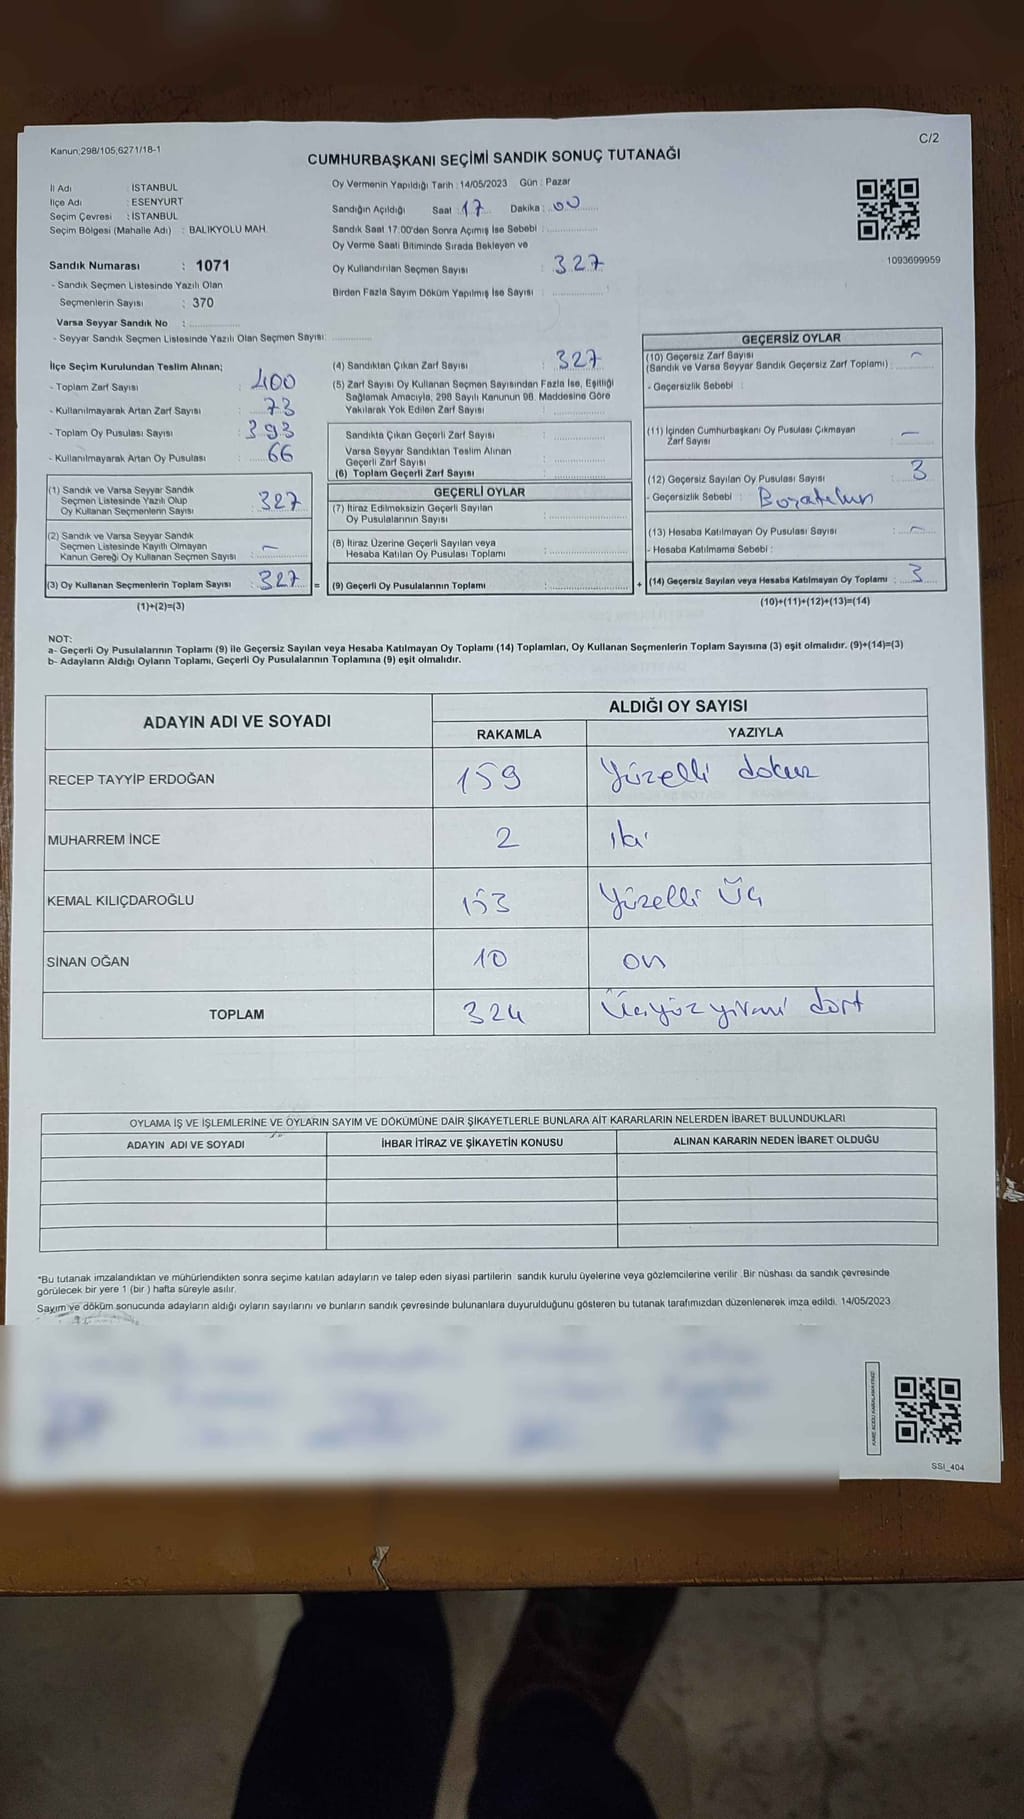 Kanun;298/105,6271/18-1
C/2
CUMHURBAŞKANI SEÇİMİ SANDIK SONUÇ TUTANAĞI
İl Adı : İSTANBUL
İlçe Adı : ESENYURT
Seçim Çevresi : İSTANBUL
Seçim Bölgesi (Mahalle Adı) : BALIKYOLU MAH.
Sandık Numarası : 1071
- Sandık Seçmen Listesinde Yazılı Olan
Seçmenlerin Sayısı : 370
Varsa Seyyar Sandık No :
- Seyyar Sandık Seçmen Listesinde Yazılı Olan Seçmen Sayısı:
Oy Vermenin Yapıldığı Tarih : 14/05/2023 Gün : Pazar
Sandığın Açıldığı Saat : 17 Dakika : 00
Sandık Saat 17:00'den Sonra Açımış İse Sebebi :
Oy Verme Saati Bitiminde Sırada Bekleyen ve
Oy Kullandırılan Seçmen Sayısı : 327
Birden Fazla Sayım Döküm Yapılmış İse Sayısı :
1093699959
İlçe Seçim Kurulundan Teslim Alınan;
- Toplam Zarf Sayısı : 400
- Kullanılmayarak Artan Zarf Sayısı : 73
- Toplam Oy Pusulası Sayısı : 393
- Kullanılmayarak Artan Oy Pusulası : 66
(1) Sandık ve Varsa Seyyar Sandık
Seçmen Listesinde Yazılı Olup
Oy Kullanan Seçmenlerin Sayısı : 327
(2) Sandık ve Varsa Seyyar Sandık
Seçmen Listesinde Kayıtlı Olmayan
Kanun Gereği Oy Kullanan Seçmen Sayısı : -
(3) Oy Kullanan Seçmenlerin Toplam Sayısı : 327 =
(1)+(2)=(3)
(4) Sandıktan Çıkan Zarf Sayısı : 327
(5) Zarf Sayısı Oy Kullanan Seçmen Sayısından Fazla İse, Eşitliği
Sağlamak Amacıyla, 298 Sayılı Kanunun 98. Maddesine Göre
Yakılarak Yok Edilen Zarf Sayısı :
Sandıkta Çıkan Geçerli Zarf Sayısı :
Varsa Seyyar Sandıktan Teslim Alınan
Geçerli Zarf Sayısı :
(6) Toplam Geçerli Zarf Sayısı :
GEÇERLİ OYLAR
(7) İtiraz Edilmeksizin Geçerli Sayılan
Oy Pusulalarının Sayısı :
(8) İtiraz Üzerine Geçerli Sayılan veya
Hesaba Katılan Oy Pusulası Toplamı :
(9) Geçerli Oy Pusulalarının Toplamı : +
GEÇERSİZ OYLAR
(10) Geçersiz Zarf Sayısı
(Sandık ve Varsa Seyyar Sandık Geçersiz Zarf Toplamı) : -
- Geçersizlik Sebebi :
(11) İçinden Cumhurbaşkanı Oy Pusulası Çıkmayan
Zarf Sayısı : -
(12) Geçersiz Sayılan Oy Pusulası Sayısı : 3
- Geçersizlik Sebebi :
(13) Hesaba Katılmayan Oy Pusulası Sayısı : -
- Hesaba Katılmama Sebebi :
(14) Geçersiz Sayılan veya Hesaba Katılmayan Oy Toplamı : 3
(10)+(11)+(12)+(13)=(14)
NOT:
a- Geçerli Oy Pusulalarının Toplamı (9) ile Geçersiz Sayılan veya Hesaba Katılmayan Oy Toplamı (14) Toplamları, Oy Kullanan Seçmenlerin Toplam Sayısına (3) eşit olmalıdır. (9)+(14)=(3)
b- Adayların Aldığı Oyların Toplamı, Geçerli Oy Pusulalarının Toplamına (9) eşit olmalıdır.
ADAYIN ADI VE SOYADI
ALDIĞI OY SAYISI
RAKAMLA YAZIYLA
RECEP TAYYİP ERDOĞAN 159 Yüzelli dokuz
MUHARREM İNCE 2 iki
KEMAL KILIÇDAROĞLU 153 Yüzelli Üç
SİNAN OĞAN 10 on
TOPLAM 324 Üçyüz yirmi dört
OYLAMA İŞ VE İŞLEMLERİNE VE OYLARIN SAYIM VE DÖKÜMÜNE DAİR ŞİKAYETLERLE BUNLARA AİT KARARLARIN NELERDEN İBARET BULUNDUKLARI
ADAYIN ADI VE SOYADI İHBAR İTİRAZ VE ŞİKAYETİN KONUSU ALINAN KARARIN NEDEN İBARET OLDUĞU
*Bu tutanak imzalandıktan ve mühürlendikten sonra seçime katılan adayların ve talep eden siyasi partilerin sandık kurulu üyelerine veya gözlemcilerine verilir .Bir nüshası da sandık çevresinde
görülecek bir yere 1 (bir ) hafta süreyle asılır.
Sayım ve döküm sonucunda adayların aldığı oyların sayılarını ve bunların sandık çevresinde bulunanlara duyurulduğunu gösteren bu tutanak tarafımızdan düzenlenerek imza edildi. 14/05/2023
KARE KODU KARALAMAYINIZ!
SSI_404